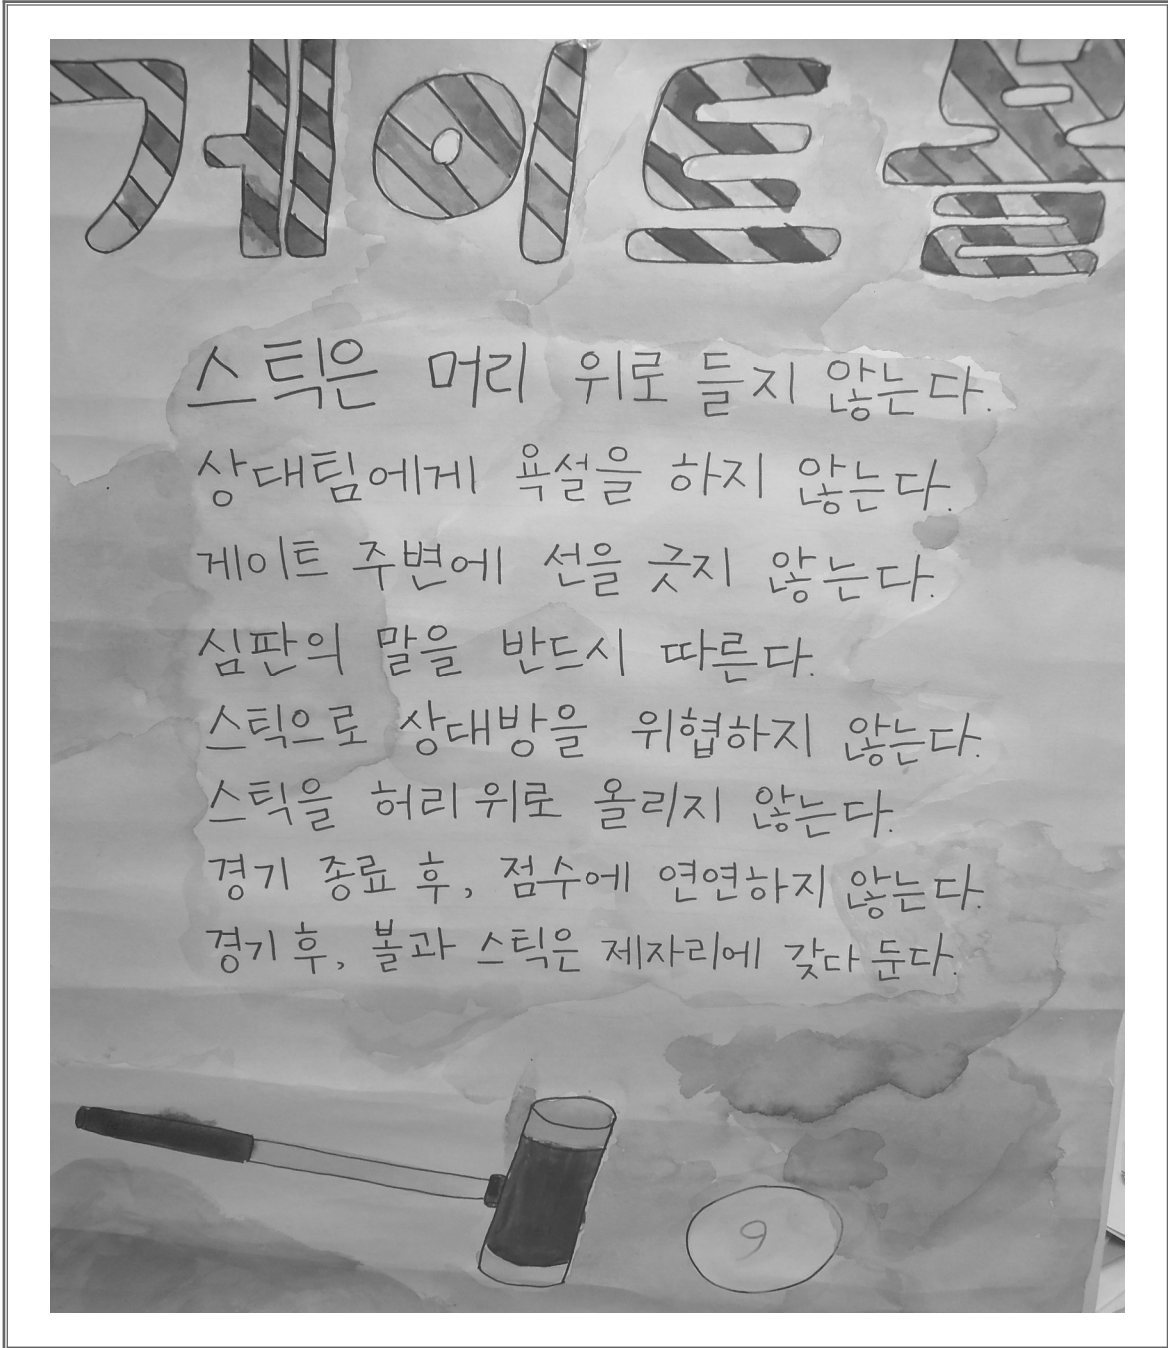 게이트볼
스틱은 머리 위로 들지 않는다.
상대팀에게 욕설을 하지 않는다.
게이트 주변에 선을 긋지 않는다.
심판의 말을 반드시 따른다.
스틱으로 상대방을 위협하지 않는다.
스틱을 허리 위로 올리지 않는다.
경기 종료 후, 점수에 연연하지 않는다.
경기 후, 볼과 스틱은 제자리에 갖다 둔다.
9